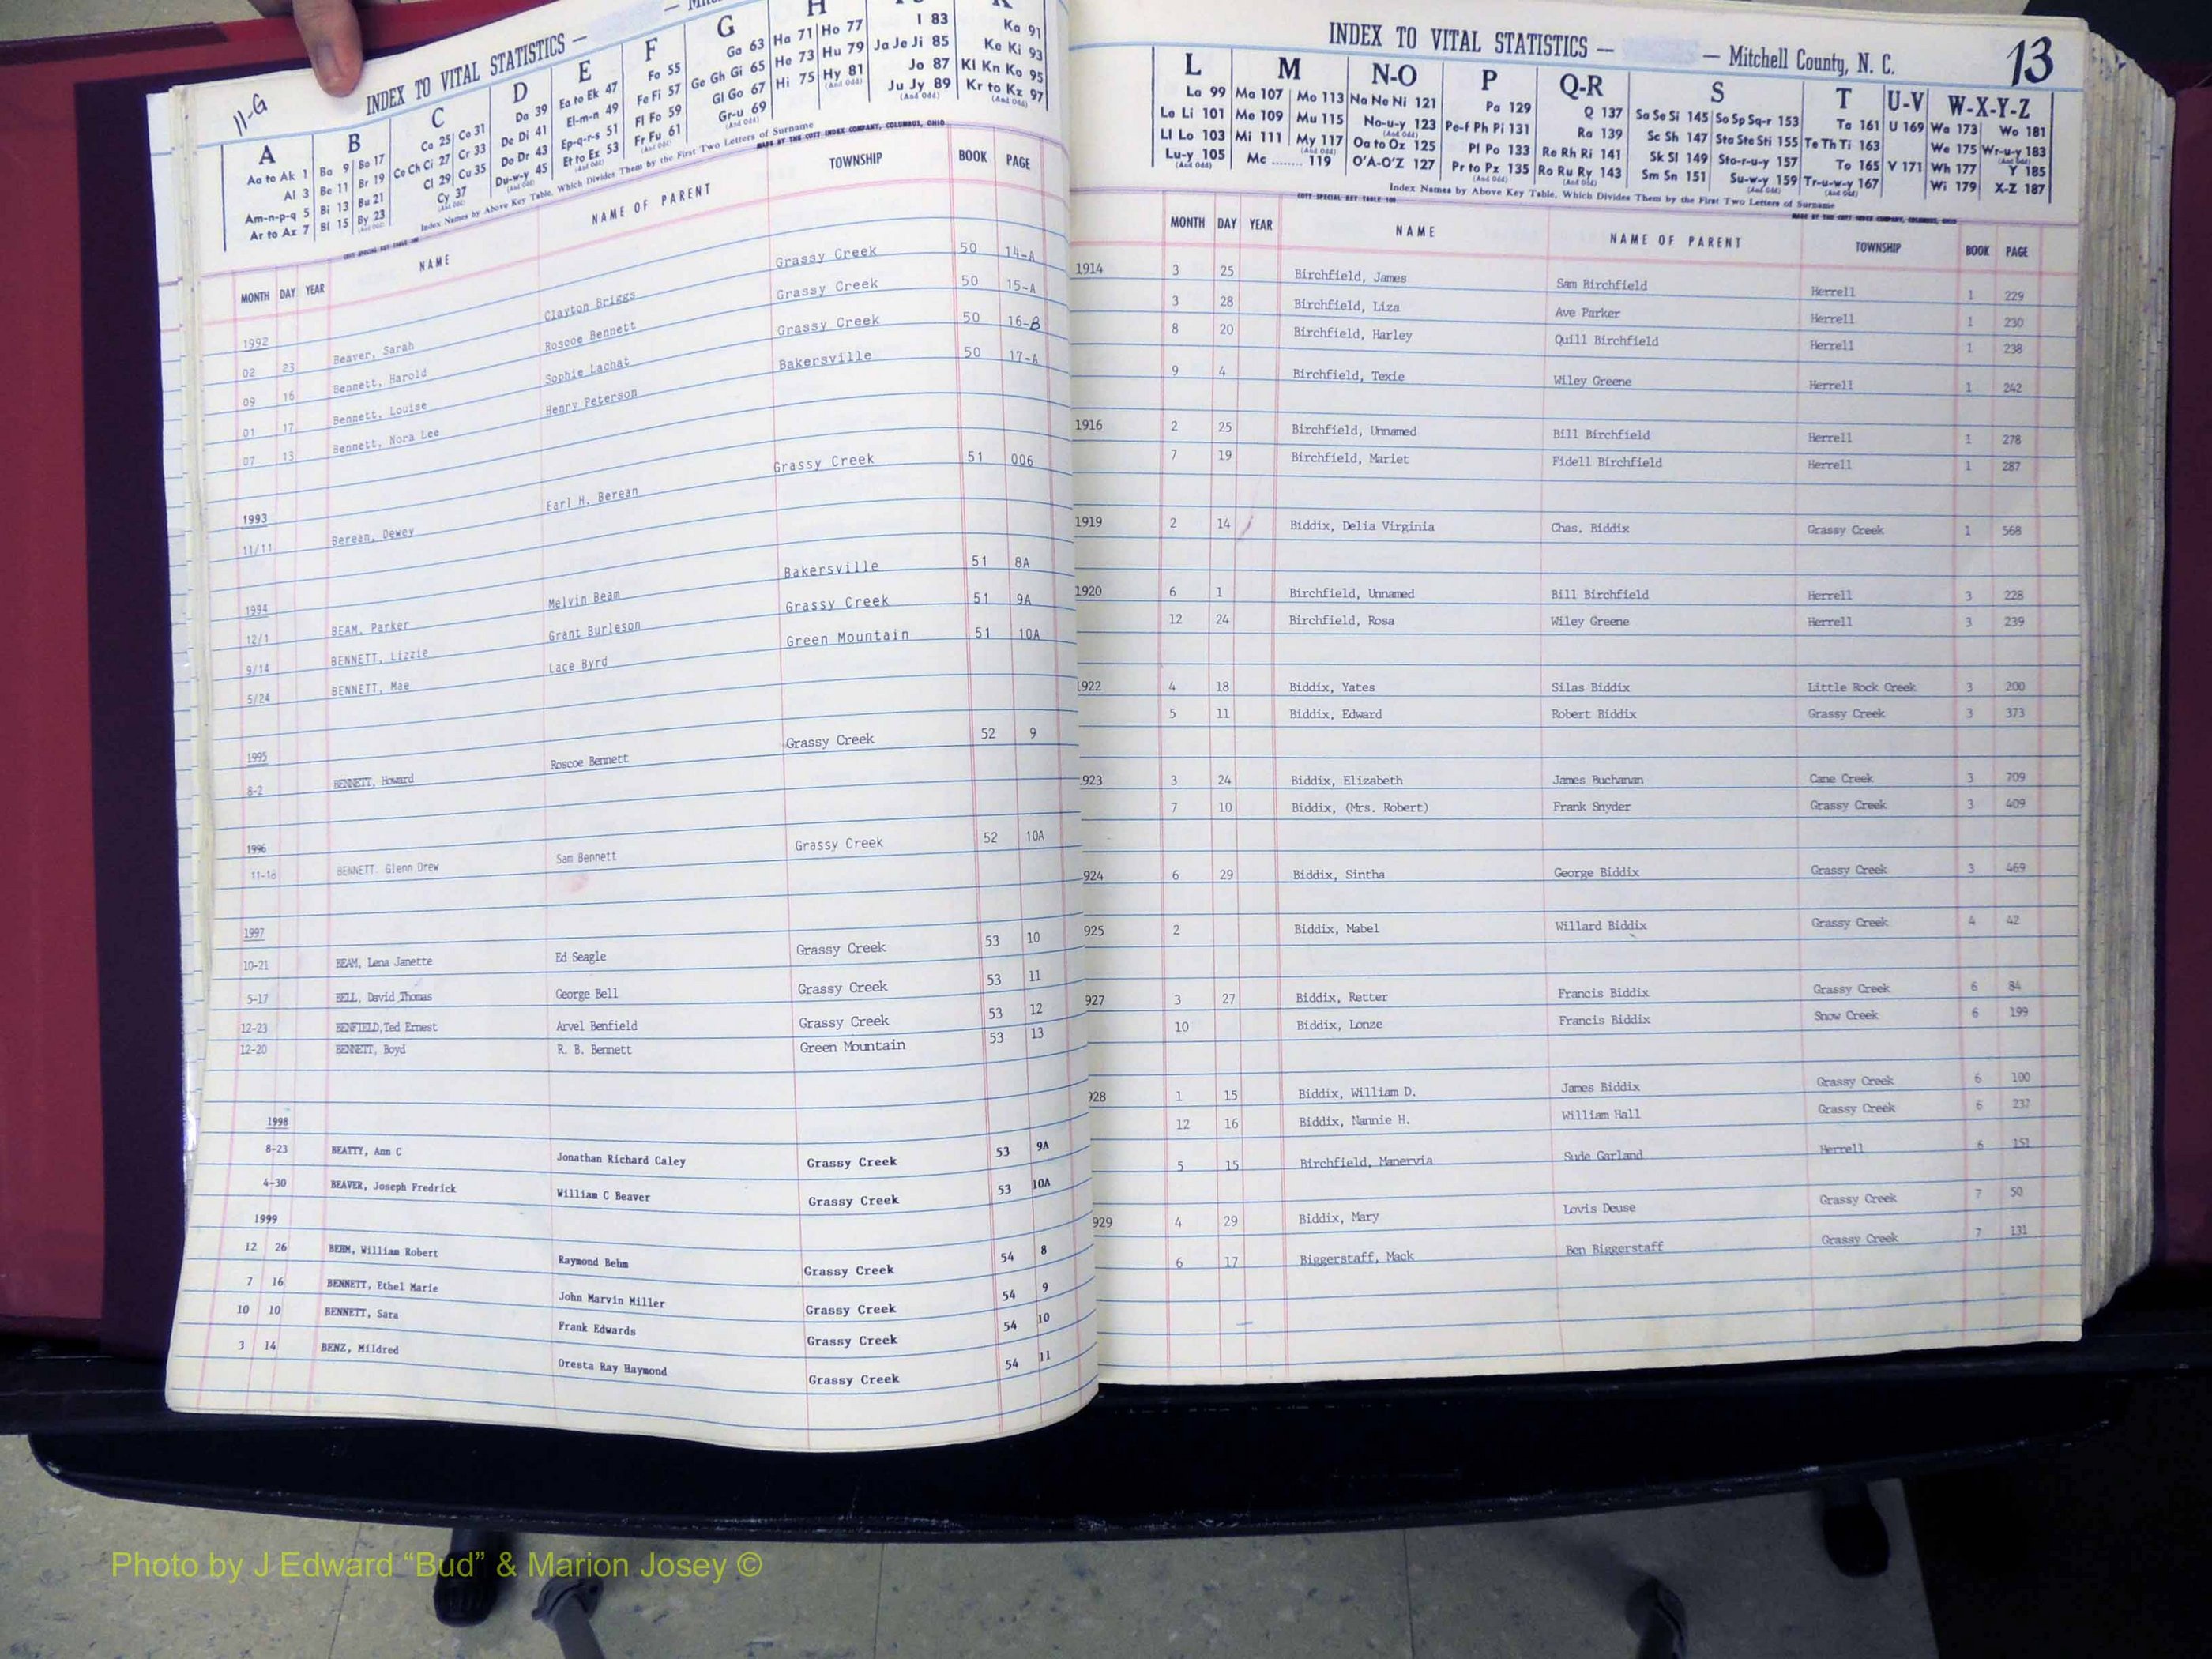 11-G
INDEX TO VITAL STATISTICS —
A B C D E F G H
Aa to Ak 1 Ba 9 Bo 17 Ca 25 Co 31 Da 39 Ea to Ek 47 Fa 55 Ga 63 Ha 71 Ho 77 I 83 Ka 91
Al 3 Be 11 Br 19 Ce Ch Ci 27 Cr 33 De Di 41 El-m-n 49 Fe Fi 57 Ge Gh Gi 65 He 73 Hu 79 Ja Je Ji 85 Ke Ki 93
Am-n-p-q 5 Bi 13 Bu 21 Cl 29 Cu 35 Do Dr 43 Ep-q-r-s 51 Fl Fo 59 Gl Go 67 Hi 75 Hy 81 Jo 87 Kl Kn Ko 95
Ar to Az 7 Bl 15 By 23 Cy 37 Du-w-y 45 Et to Ez 53 Fr Fu 61 Gr-u 69 Ju Jy 89 Kr to Kz 97
Index Names by Above Key Table, Which Divides Them by the First Two Letters of Surname
MADE BY THE COTT INDEX COMPANY, COLUMBUS, OHIO
MONTH DAY YEAR NAME NAME OF PARENT TOWNSHIP BOOK PAGE
1992
02 23 Beaver, Sarah Clayton Briggs Grassy Creek 50 14-A
09 16 Bennett, Harold Roscoe Bennett Grassy Creek 50 15-A
01 17 Bennett, Louise Sophie Lachat Grassy Creek 50 16-B
07 13 Bennett, Nora Lee Henry Peterson Bakersville 50 17-A
1993
11/11 Berean, Dewey Earl H. Berean Grassy Creek 51 006
1994
12/1 BEAM, Parker Melvin Beam Bakersville 51 8A
9/14 BENNETT, Lizzie Grant Burleson Grassy Creek 51 9A
5/24 BENNETT, Mae Lace Byrd Green Mountain 51 10A
1995
8-2 BENNETT, Howard Roscoe Bennett Grassy Creek 52 9
1996
11-18 BENNETT Glenn Drew Sam Bennett Grassy Creek 52 10A
1997
10-21 BEAM, Lena Janette Ed Seagle Grassy Creek 53 10
5-17 BELL, David Thomas George Bell Grassy Creek 53 11
12-23 BENFIELD,Ted Ernest Arvel Benfield Grassy Creek 53 12
12-20 BENNETT, Boyd R. B. Bennett Green Mountain 53 13
1998
8-23 BEATTY, Ann C Jonathan Richard Caley Grassy Creek 53 9A
4-30 BEAVER, Joseph Fredrick William C Beaver Grassy Creek 53 10A
1999
12 26 BEHM, William Robert Raymond Behm Grassy Creek 54 8
7 16 BENNETT, Ethel Marie John Marvin Miller Grassy Creek 54 9
10 10 BENNETT, Sara Frank Edwards Grassy Creek 54 10
3 14 BENZ, Mildred Oresta Ray Haymond Grassy Creek 54 11
INDEX TO VITAL STATISTICS — — Mitchell County, N. C. 13
L M N-O P Q-R S T U-V W-X-Y-Z
La 99 Ma 107 Mo 113 Na Ne Ni 121 Pa 129 Q 137 Sa Se Si 145 So Sp Sq-r 153 Ta 161 U 169 Wa 173 Wo 181
Le Li 101 Me 109 Mu 115 No-u-y 123 Pe-f Ph Pi 131 Ra 139 Sc Sh 147 Sta Ste Sti 155 Te Th Ti 163 We 175 Wr-u-y 183
Ll Lo 103 Mi 111 My 117 Oa to Oz 125 Pl Po 133 Re Rh Ri 141 Sk Sl 149 Sto-r-u-y 157 To 165 V 171 Wh 177 Y 185
Lu-y 105 Mc 119 O'A-O'Z 127 Pr to Pz 135 Ro Ru Ry 143 Sm Sn 151 Su-w-y 159 Tr-u-w-y 167 Wi 179 X-Z 187
Index Names by Above Key Table, Which Divides Them by the First Two Letters of Surname
MONTH DAY YEAR NAME NAME OF PARENT TOWNSHIP BOOK PAGE
1914 3 25 Birchfield, James Sam Birchfield Herrell 1 229
3 28 Birchfield, Liza Ave Parker Herrell 1 230
8 20 Birchfield, Harley Quill Birchfield Herrell 1 238
9 4 Birchfield, Texie Wiley Greene Herrell 1 242
1916 2 25 Birchfield, Unnamed Bill Birchfield Herrell 1 278
7 19 Birchfield, Mariet Fidell Birchfield Herrell 1 287
1919 2 14 Biddix, Delia Virginia Chas. Biddix Grassy Creek 1 568
1920 6 1 Birchfield, Unnamed Bill Birchfield Herrell 3 228
12 24 Birchfield, Rosa Wiley Greene Herrell 3 239
1922 4 18 Biddix, Yates Silas Biddix Little Rock Creek 3 200
5 11 Biddix, Edward Robert Biddix Grassy Creek 3 373
923 3 24 Biddix, Elizabeth James Buchanan Cane Creek 3 709
7 10 Biddix, (Mrs. Robert) Frank Snyder Grassy Creek 3 409
924 6 29 Biddix, Sintha George Biddix Grassy Creek 3 469
925 2 Biddix, Mabel Willard Biddix Grassy Creek 4 42
927 3 27 Biddix, Retter Francis Biddix Grassy Creek 6 84
10 Biddix, Lonze Francis Biddix Snow Creek 6 199
928 1 15 Biddix, William D. James Biddix Grassy Creek 6 100
12 16 Biddix, Nannie H. William Hall Grassy Creek 6 237
5 15 Birchfield, Manervia Sude Garland Herrell 6 151
929 4 29 Biddix, Mary Lovis Deuse Grassy Creek 7 50
6 17 Biggerstaff, Mack Ben Biggerstaff Grassy Creek 7 131
Photo by J Edward “Bud” & Marion Josey ©